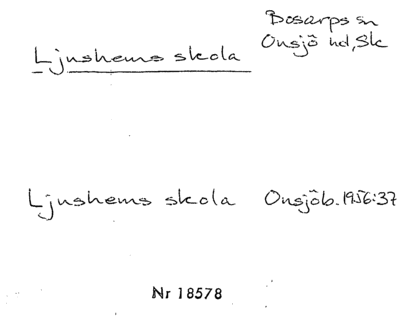 Bosarps sn
Ljushems skola Onsjö hd, Sk
Ljushems skola Onsjöb. 1956:37
Nr 18578